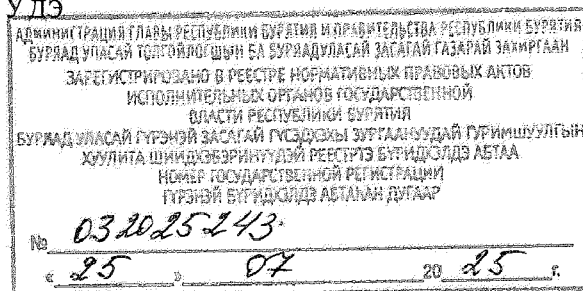 У ДЭ
АДМИНИСТРАЦИЯ ГЛАВЫ РЕСПУБЛИКИ БУРЯТИЯ И ПРАВИТЕЛЬСТВА РЕСПУБЛИКИ БУРЯТИЯ
БУРЯАД УЛАСАЙ ТОЛГОЙЛОГШЫН БА БУРЯАД УЛАСАЙ ЗАСАГАЙ ГАЗАРАЙ ЗАХИРГААН
ЗАРЕГИСТРИРОВАНО В РЕЕСТРЕ НОРМАТИВНЫХ ПРАВОВЫХ АКТОВ
ИСПОЛНИТЕЛЬНЫХ ОРГАНОВ ГОСУДАРСТВЕННОЙ
ВЛАСТИ РЕСПУБЛИКИ БУРЯТИЯ
БУРЯАД УЛАСАЙ ГҮРЭНЭЙ ЗАСАГАЙ ГҮСЭДХЭХЫ ЗУРГААНУУДАЙ ГУРИМШУУЛГЫН
ХУУЛИТА ШИИДХЭБЭРИНҮҮДЭЙ РЕЕСТРТЭ БҮРИДХЭЛДЭ АБТАА
НОМЕР ГОСУДАРСТВЕННОЙ РЕГИСТРАЦИИ
ГҮРЭНЭЙ БҮРИДХЭЛДЭ АБТАҺАН ДУГААР
№ 032025243
« 25 » 07 20 25 г.